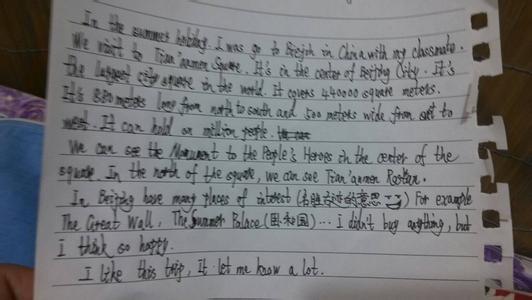 In the summer holiday. I was go to Beijih in China with my classmate.
We visit to Tian'anmen Square. It's in the center of Beijhg City. It's
the largest city square in the world. It covers 440000 square meters.
It's 880 meters long from north to south and 500 meters wide from east to
west. It can hold on million people.
We can see the Monument to the People's Heroes in the center of the
square. In the north of the square, we can see Tian'anmen Rostan.
In Beijhg have many places of interest (名胜古迹的意思) For example
The Great Wall, The Summer Palace ... I didn't buy anything, but
I think so happy.
I like this trip, It let me know a lot.